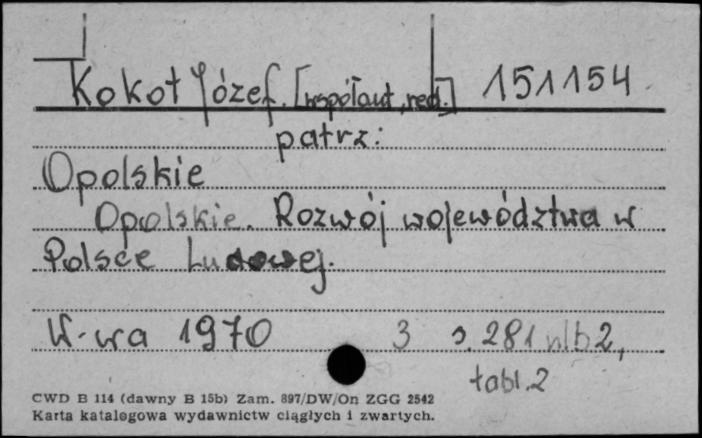 Kokot Józef. [współaut., red.] 151154
patrz:
Opolskie
Opolskie. Rozwój województwa w
Polsce Ludowej.
W-wa 1970 3 s. 281 nlb 2,
tabl. 2
CWD B 114 (dawny B 15b) Zam. 897/DW/On ZGG 2542
Karta katalogowa wydawnictw ciągłych i zwartych.